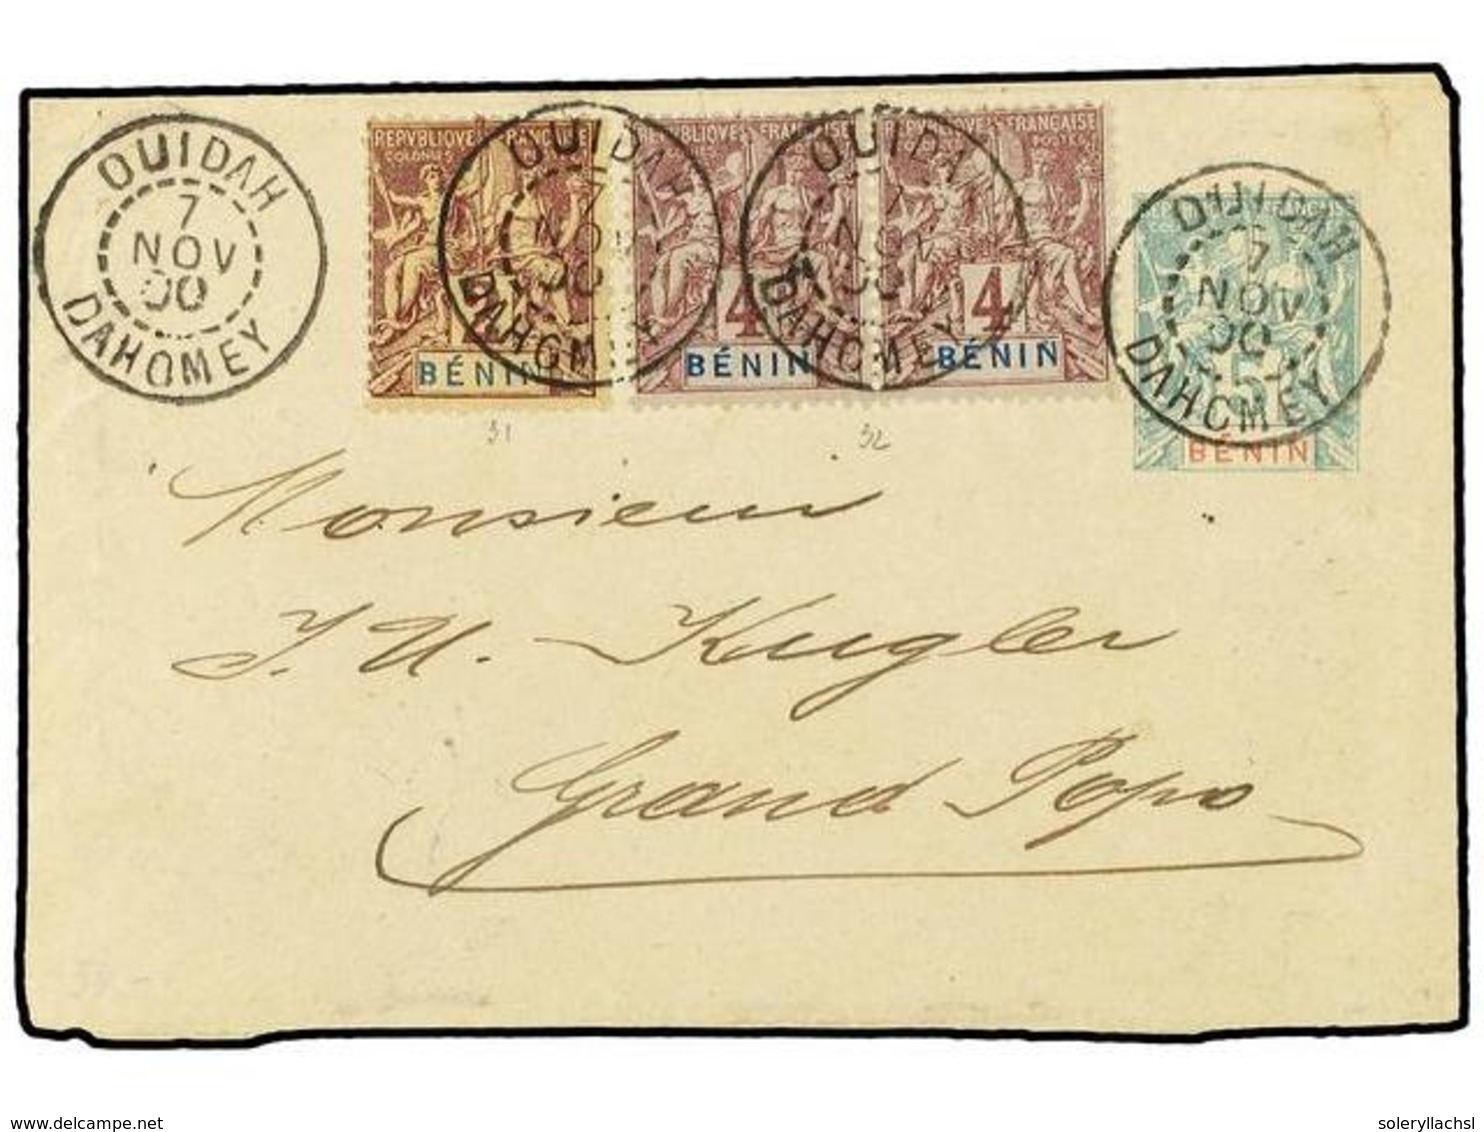 OUIDAH
7
NOV
00
DAHOMEY
REPVBLIQVE FRANÇAISE
COLONIES
BÉNIN
OUIDAH
7
NOV
00
DAHOMEY
REPVBLIQVE FRANÇAISE
4
BÉNIN
OUIDAH
NOV
00
DAHOMEY
REPVBLIQVE FRANÇAISE
POSTES
4
BÉNIN
OUIDAH
7
NOV
00
DAHOMEY
5
BÉNIN
31
32
Monsieur
J. U. Kugler
Grand Popo
www.delcampe.net
soleryllachsl